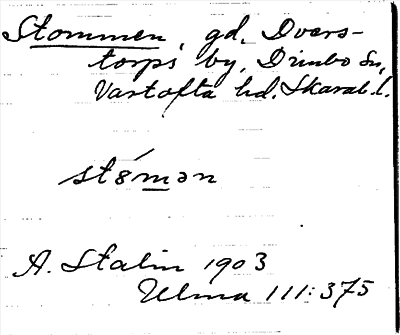 Stommen, gd. Dvers-
torps by, Dimbo sn,
Vartofta hd. Skarab. l.
stómən
A. Stalin 1903
Ulma 111:375